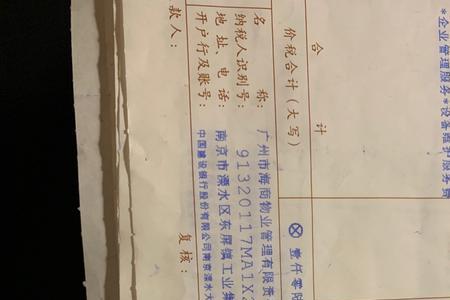 *企业管理服务*设备维护服务费
合 计
价税合计（大写） ⊗ 壹仟零
名 称：广州市海商物业管理有限责
纳税人识别号：91320117MA1X2
地址、电话：南京市溧水区东屏镇工业集
开户行及账号：中国建设银行股份有限公司南京溧水大
款人： 复核：